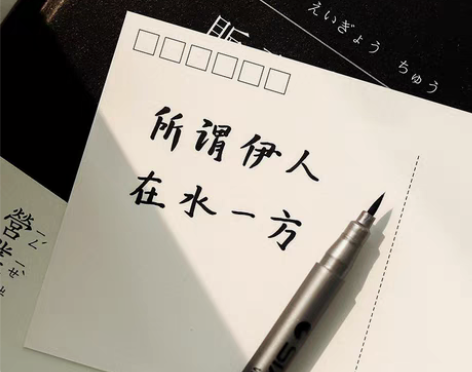 えいぎょう ちゅう
所谓伊人
在水一方
營